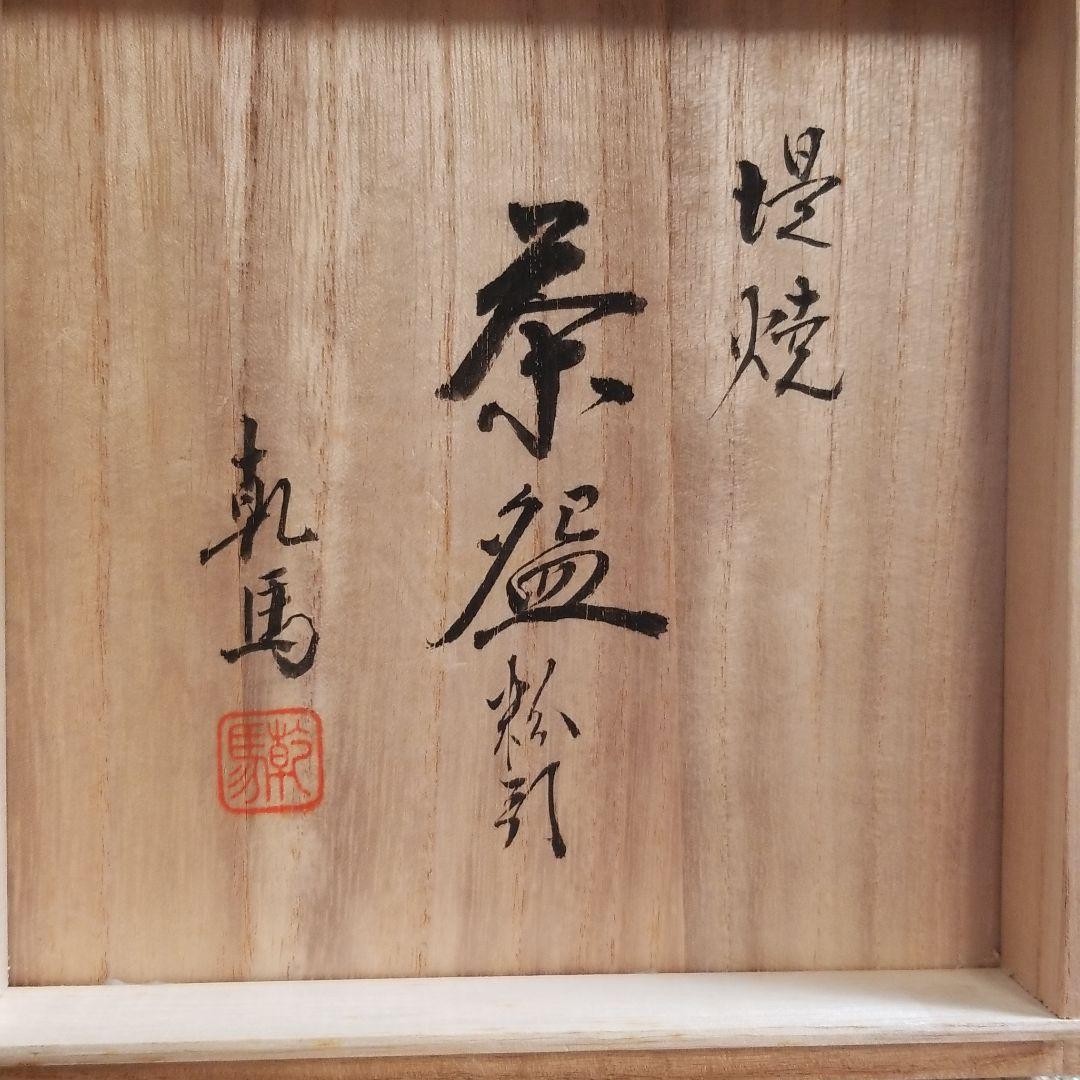 堤焼
茶盌 粉引
乾馬
乾馬